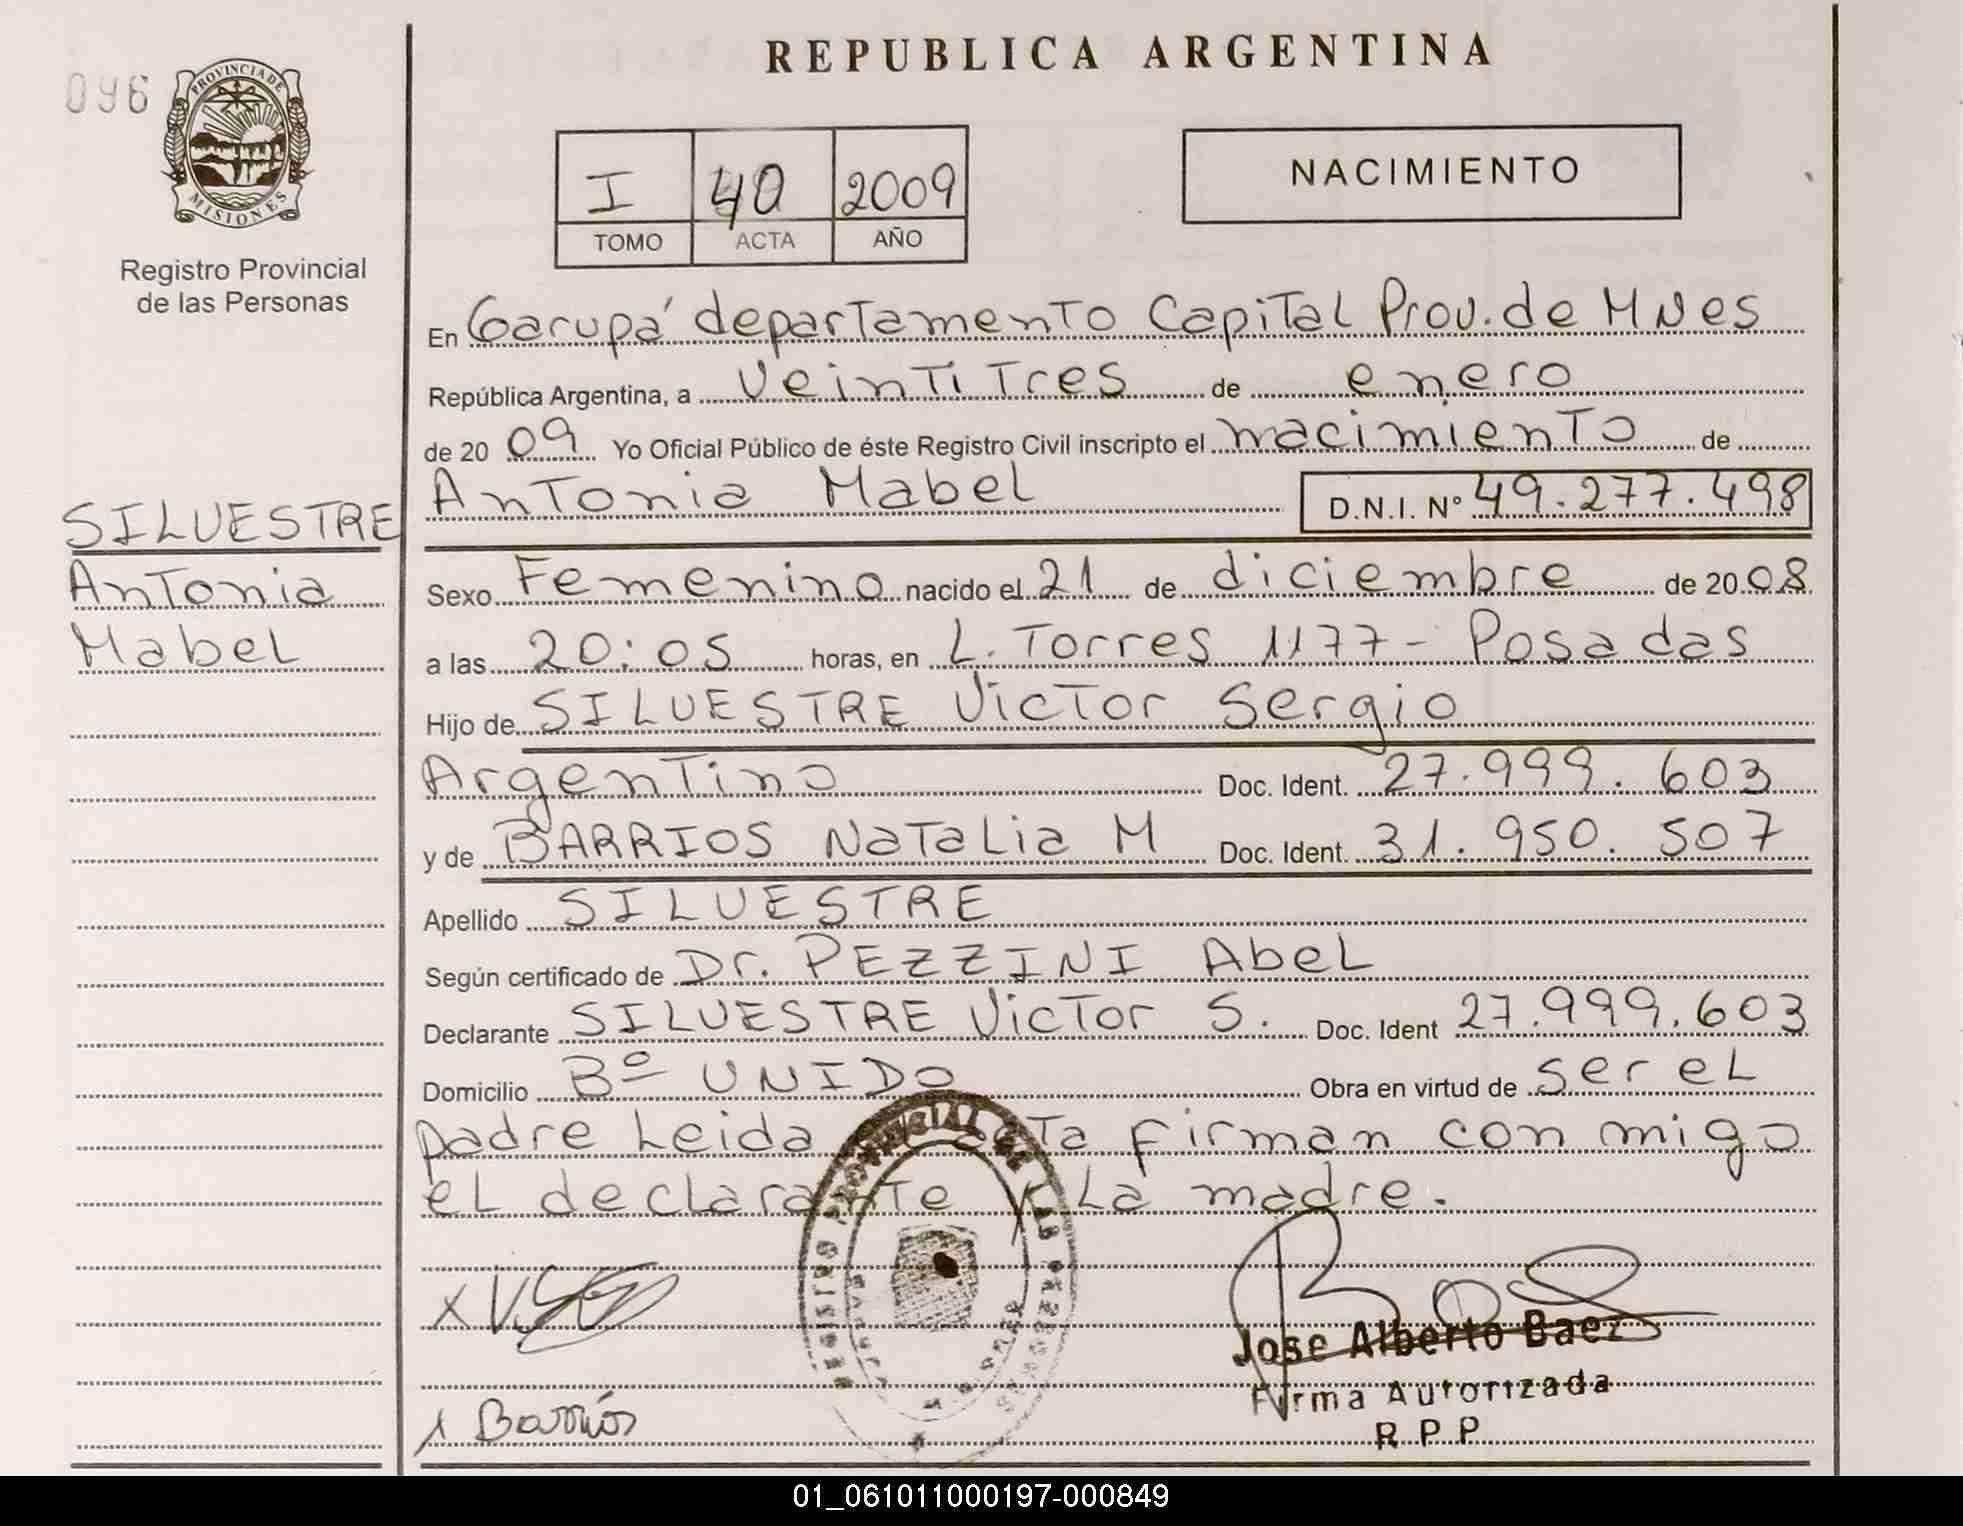 REPUBLICA ARGENTINA
096
PROVINCIA DE
MISIONES
Registro Provincial
de las Personas
I 40 2009
TOMO ACTA AÑO
NACIMIENTO
En Garupá departamento Capital Prov. de MNes
República Argentina, a veintitres de enero
de 2009 Yo Oficial Público de éste Registro Civil inscripto el nacimiento de
Antonia Mabel D.N.I. N° 49.277.498
SILVESTRE
Antonia
Mabel
Sexo Femenino nacido el 21 de diciembre de 2008
a las 20:05 horas, en L. Torres 1177 - Posadas
Hijo de SILVESTRE Victor Sergio
Argentino Doc. Ident. 27.999.603
y de BARRIOS Natalia M Doc. Ident. 31.950.507
Apellido SILVESTRE
Según certificado de Dr. PEZZINI Abel
Declarante SILVESTRE Victor S. Doc. Ident 27.999.603
Domicilio Bº UNIDO Obra en virtud de ser el
padre Leida acta firman con migo
el declarante y La madre.
REGISTRO PROVINCIAL DE LAS PERSONAS
Jose Alberto Baez
Firma Autorizada
R P P
x Barrios
01_061011000197-000849